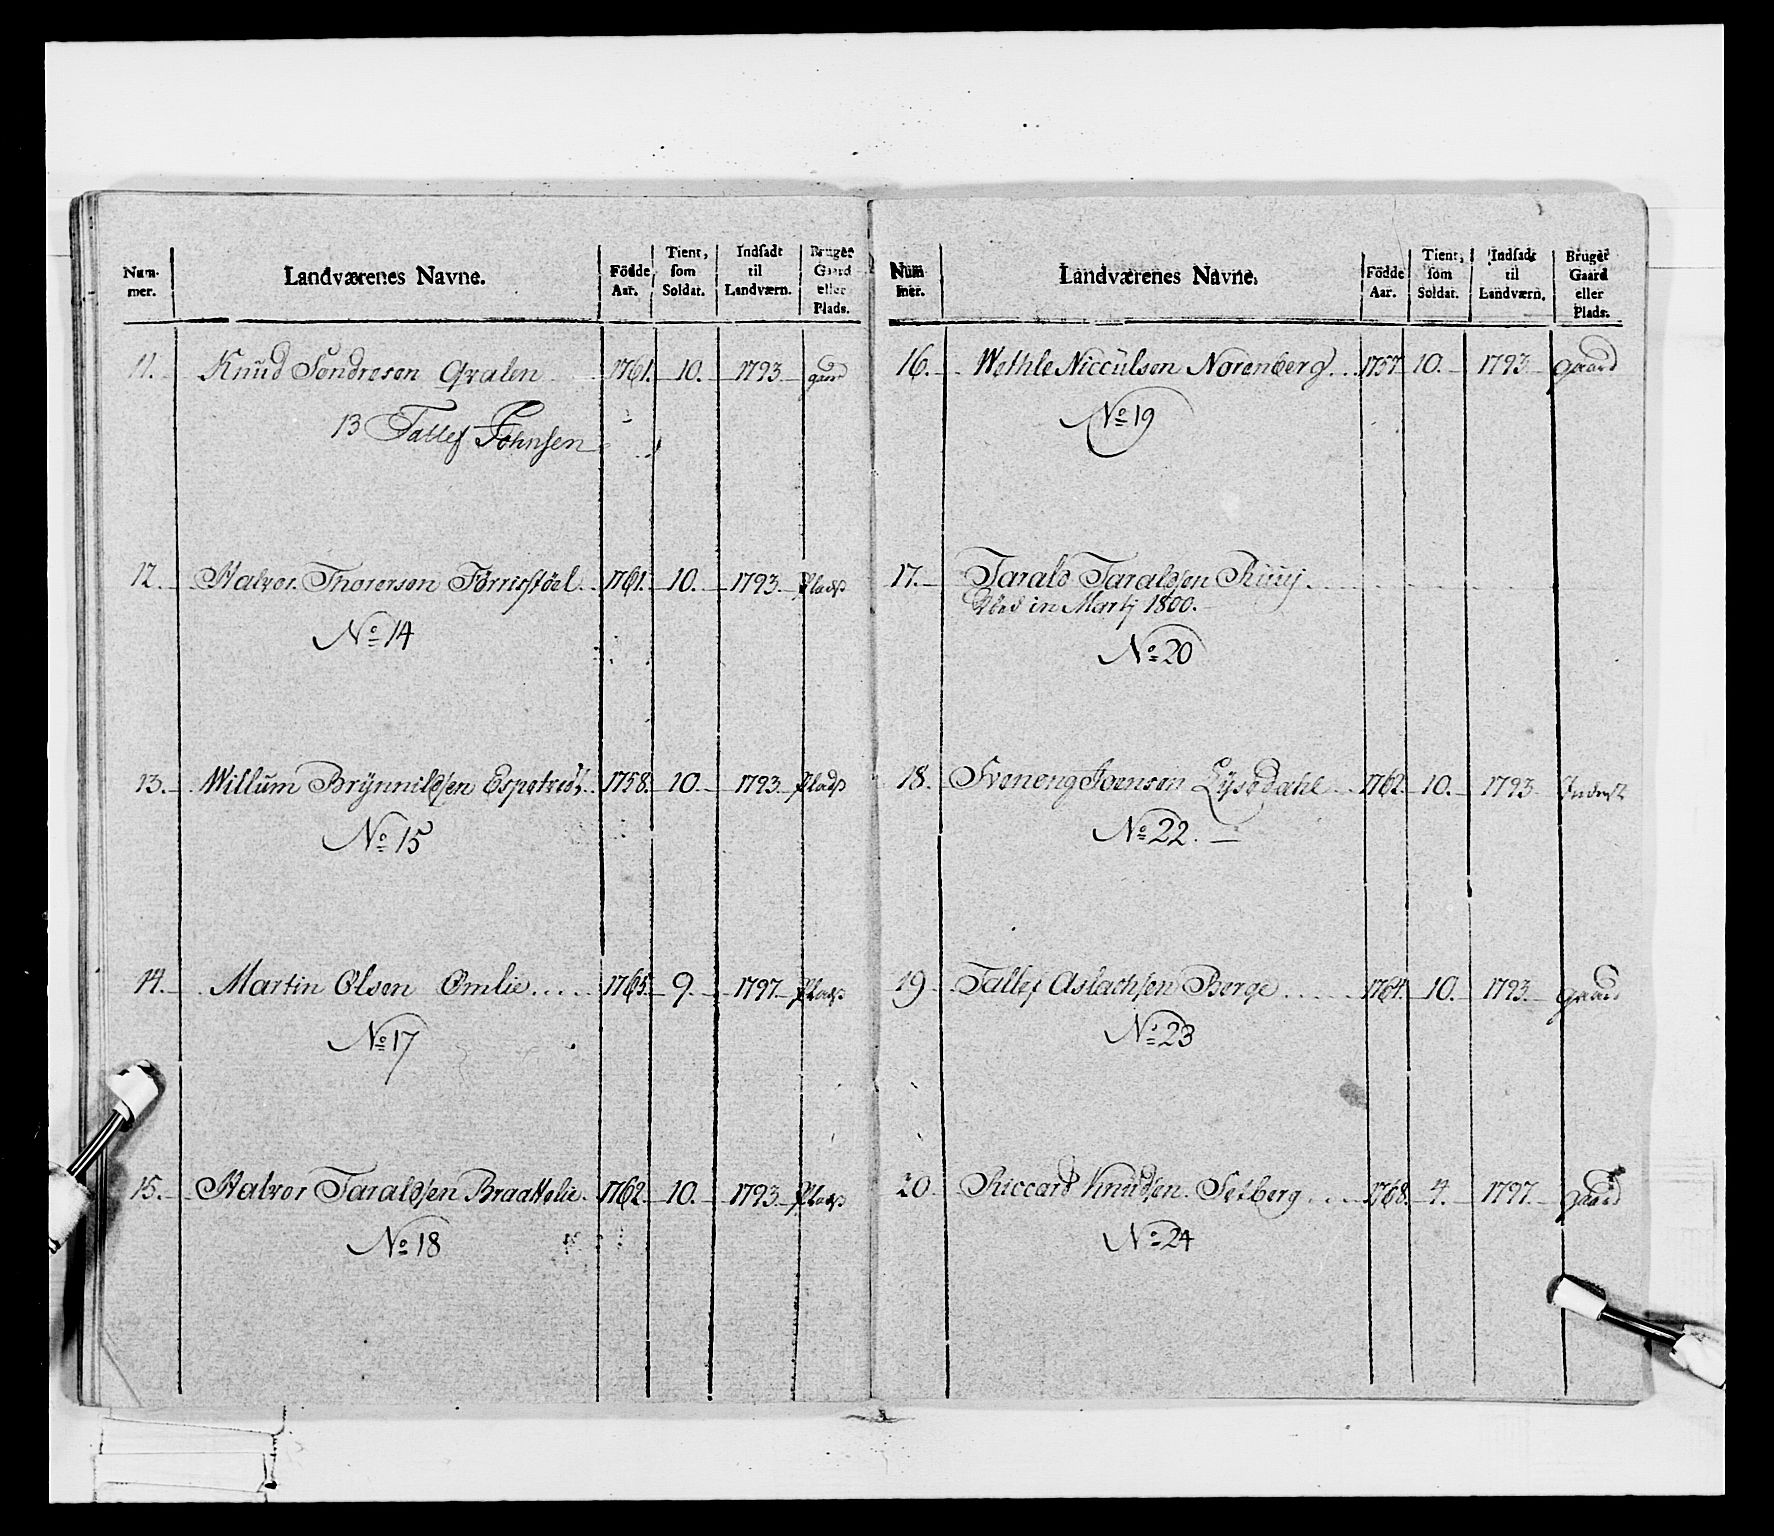 Num-
mer.
Landværenes Navne.
Födde
Aar.
Tient,
som
Soldat.
Indsadt
til
Landværn.
Bruger
Gaard
eller
Plads.
11. Knud Sondresen Qvalen 1761. 10. 1793. gaard
13 Tallef Johnsen
12. Halvor Thorersen Törrisstöel 1761. 10. 1793. Plads
No 14
13. Willum Brÿnnildsen Espetved 1758. 10. 1793. Plads
No 15
14. Martin Olsen Omlie 1765. 9. 1797. Plads
No 17
15. Halvor Taraldsen Braattelie 1762. 10. 1793. Plads
No 18
Num
mer.
Landværenes Navne.
Födde
Aar.
Tient,
som
Soldat.
Indsadt
til
Landværn.
Bruger
Gaard
eller
Plads.
16. Wethle Niccülsen Norenberg 1757 10. 1793 gaard
No 19
17. Tarald Taraldsen
död in Martj 1800.
No 20
18. Sveneng Joensen Lÿsedahl 1762. 10. 1793 Inderst
No 22.
19 Tallef Aslachsen Berge 1764. 10. 1793. gaard
No 23
20 Riccard Knudsen Setberg 1768. 4. 1797. gaard
No 24